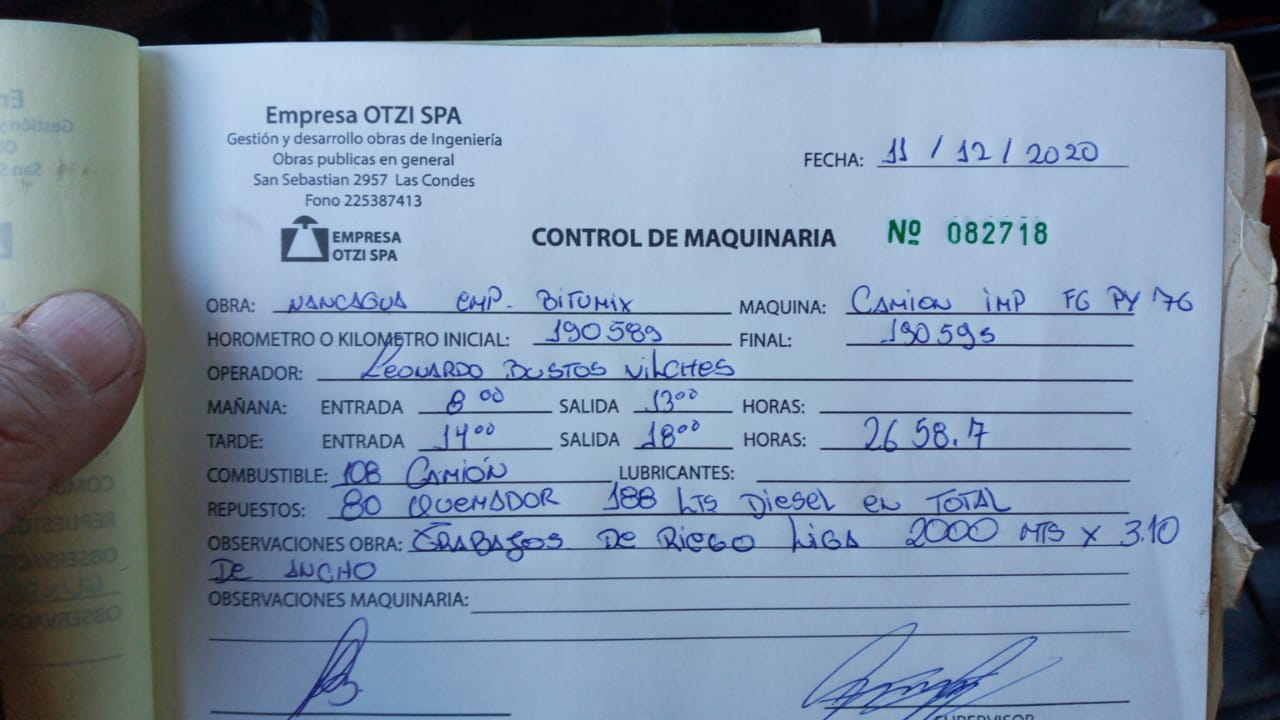 Empresa OTZI SPA
Gestión y desarrollo obras de Ingeniería
Obras publicas en general
San Sebastian 2957 Las Condes
Fono 225387413
EMPRESA
OTZI SPA
FECHA: 11 / 12 / 2020
CONTROL DE MAQUINARIA
Nº 082718
OBRA: NANCAGUA EMP. BITUMIX MAQUINA: CAMION IMP FG PY 76
HOROMETRO O KILOMETRO INICIAL: 190589 FINAL: 190595
OPERADOR: LEONARDO BUSTOS VILCHES
MAÑANA: ENTRADA 8 00 SALIDA 13 00 HORAS:
TARDE: ENTRADA 14 00 SALIDA 18 00 HORAS: 26 58.7
COMBUSTIBLE: 108 CAMIÓN LUBRICANTES:
REPUESTOS: 80 QUEMADOR 188 LTS DIESEL EN TOTAL
OBSERVACIONES OBRA: TRABAJOS DE RIEGO LIGA 2000 MTS X 3.10
DE ANCHO
OBSERVACIONES MAQUINARIA:
SUPERVISOR